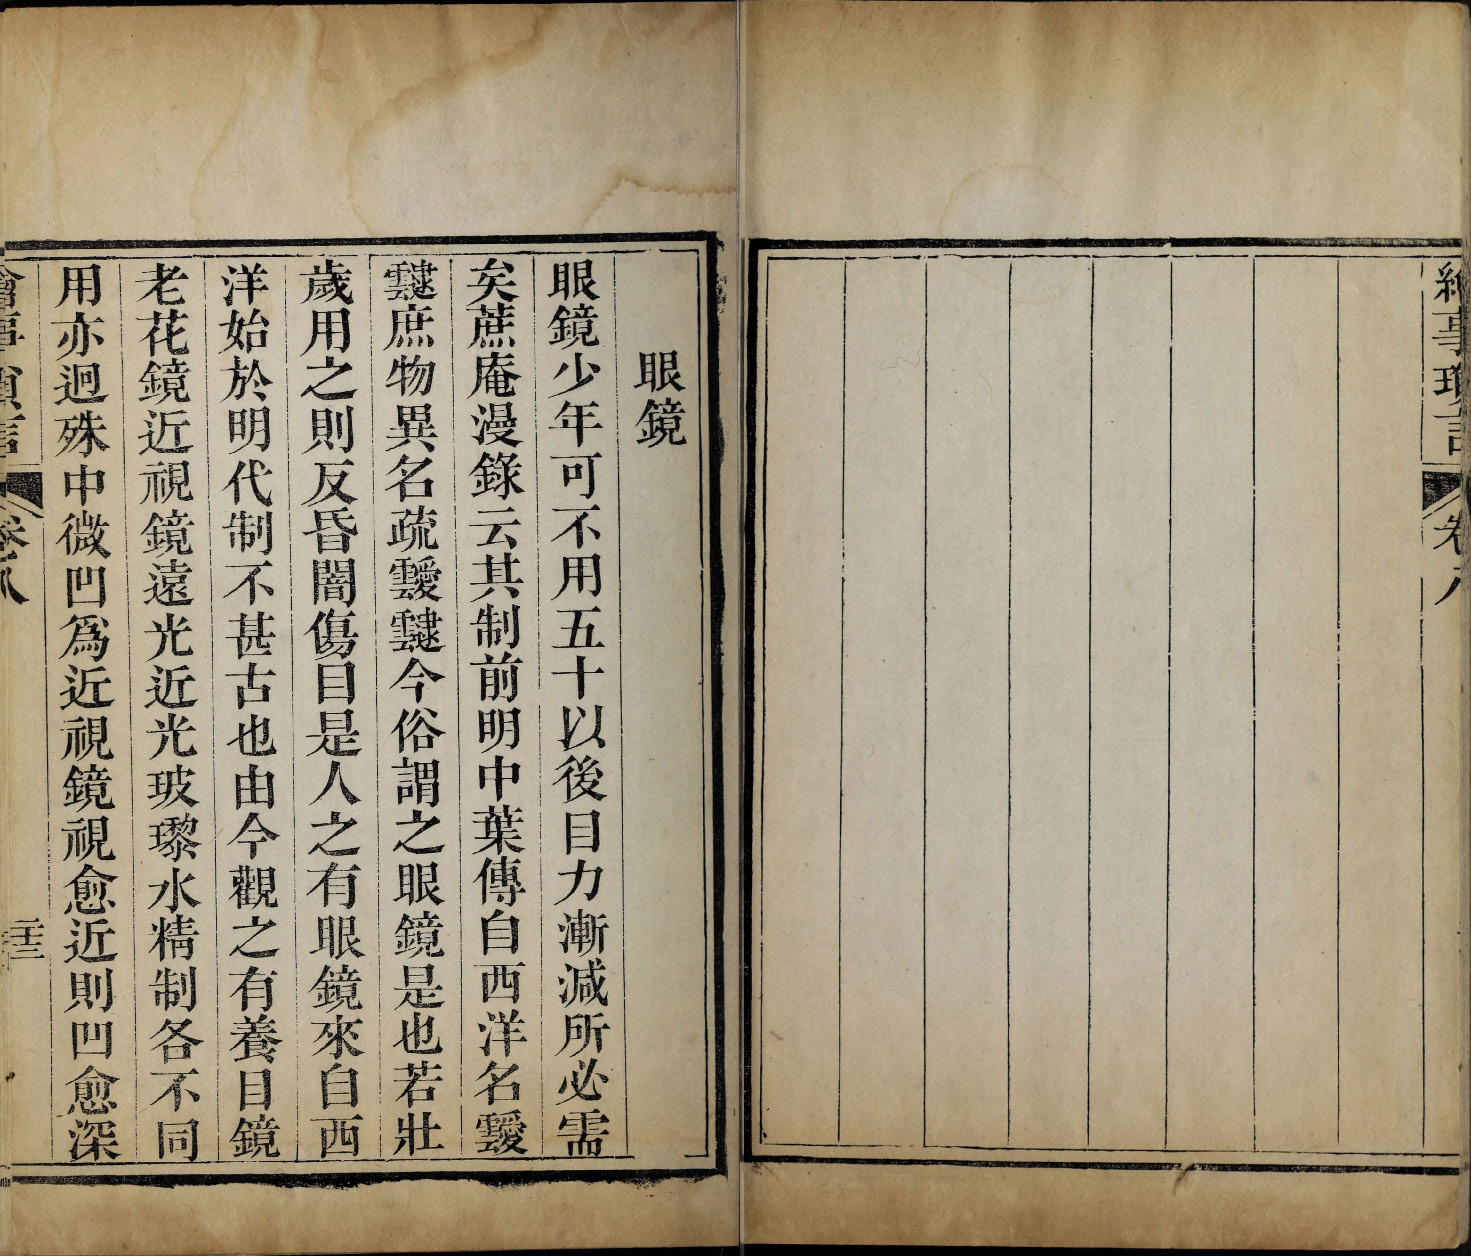 繪事瑣言 卷八
眼鏡
眼鏡少年可不用五十以後目力漸減所必需
矣蔗庵漫錄云其制前明中葉傳自西洋名靉
靆庶物異名疏靉靆今俗謂之眼鏡是也若壯
歲用之則反昏闇傷目是人之有眼鏡來自西
洋始於明代制不甚古也由今觀之有養目鏡
老花鏡近視鏡遠光近光玻瓈水精制各不同
用亦逈殊中微凹爲近視鏡視愈近則凹愈深
繪事瑣言 卷八 二十三